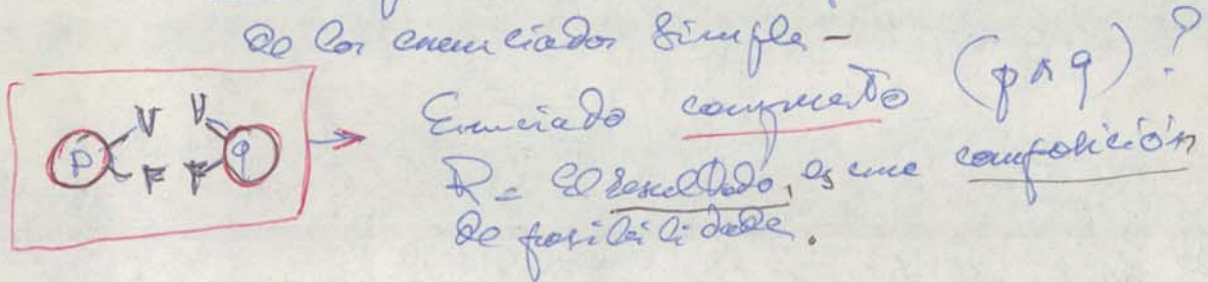 de los enunciados simples -
V V
p q
F F
Enunciado compuesto (p ∧ q)?
R = El resultado, es una composición
de posibilidades.